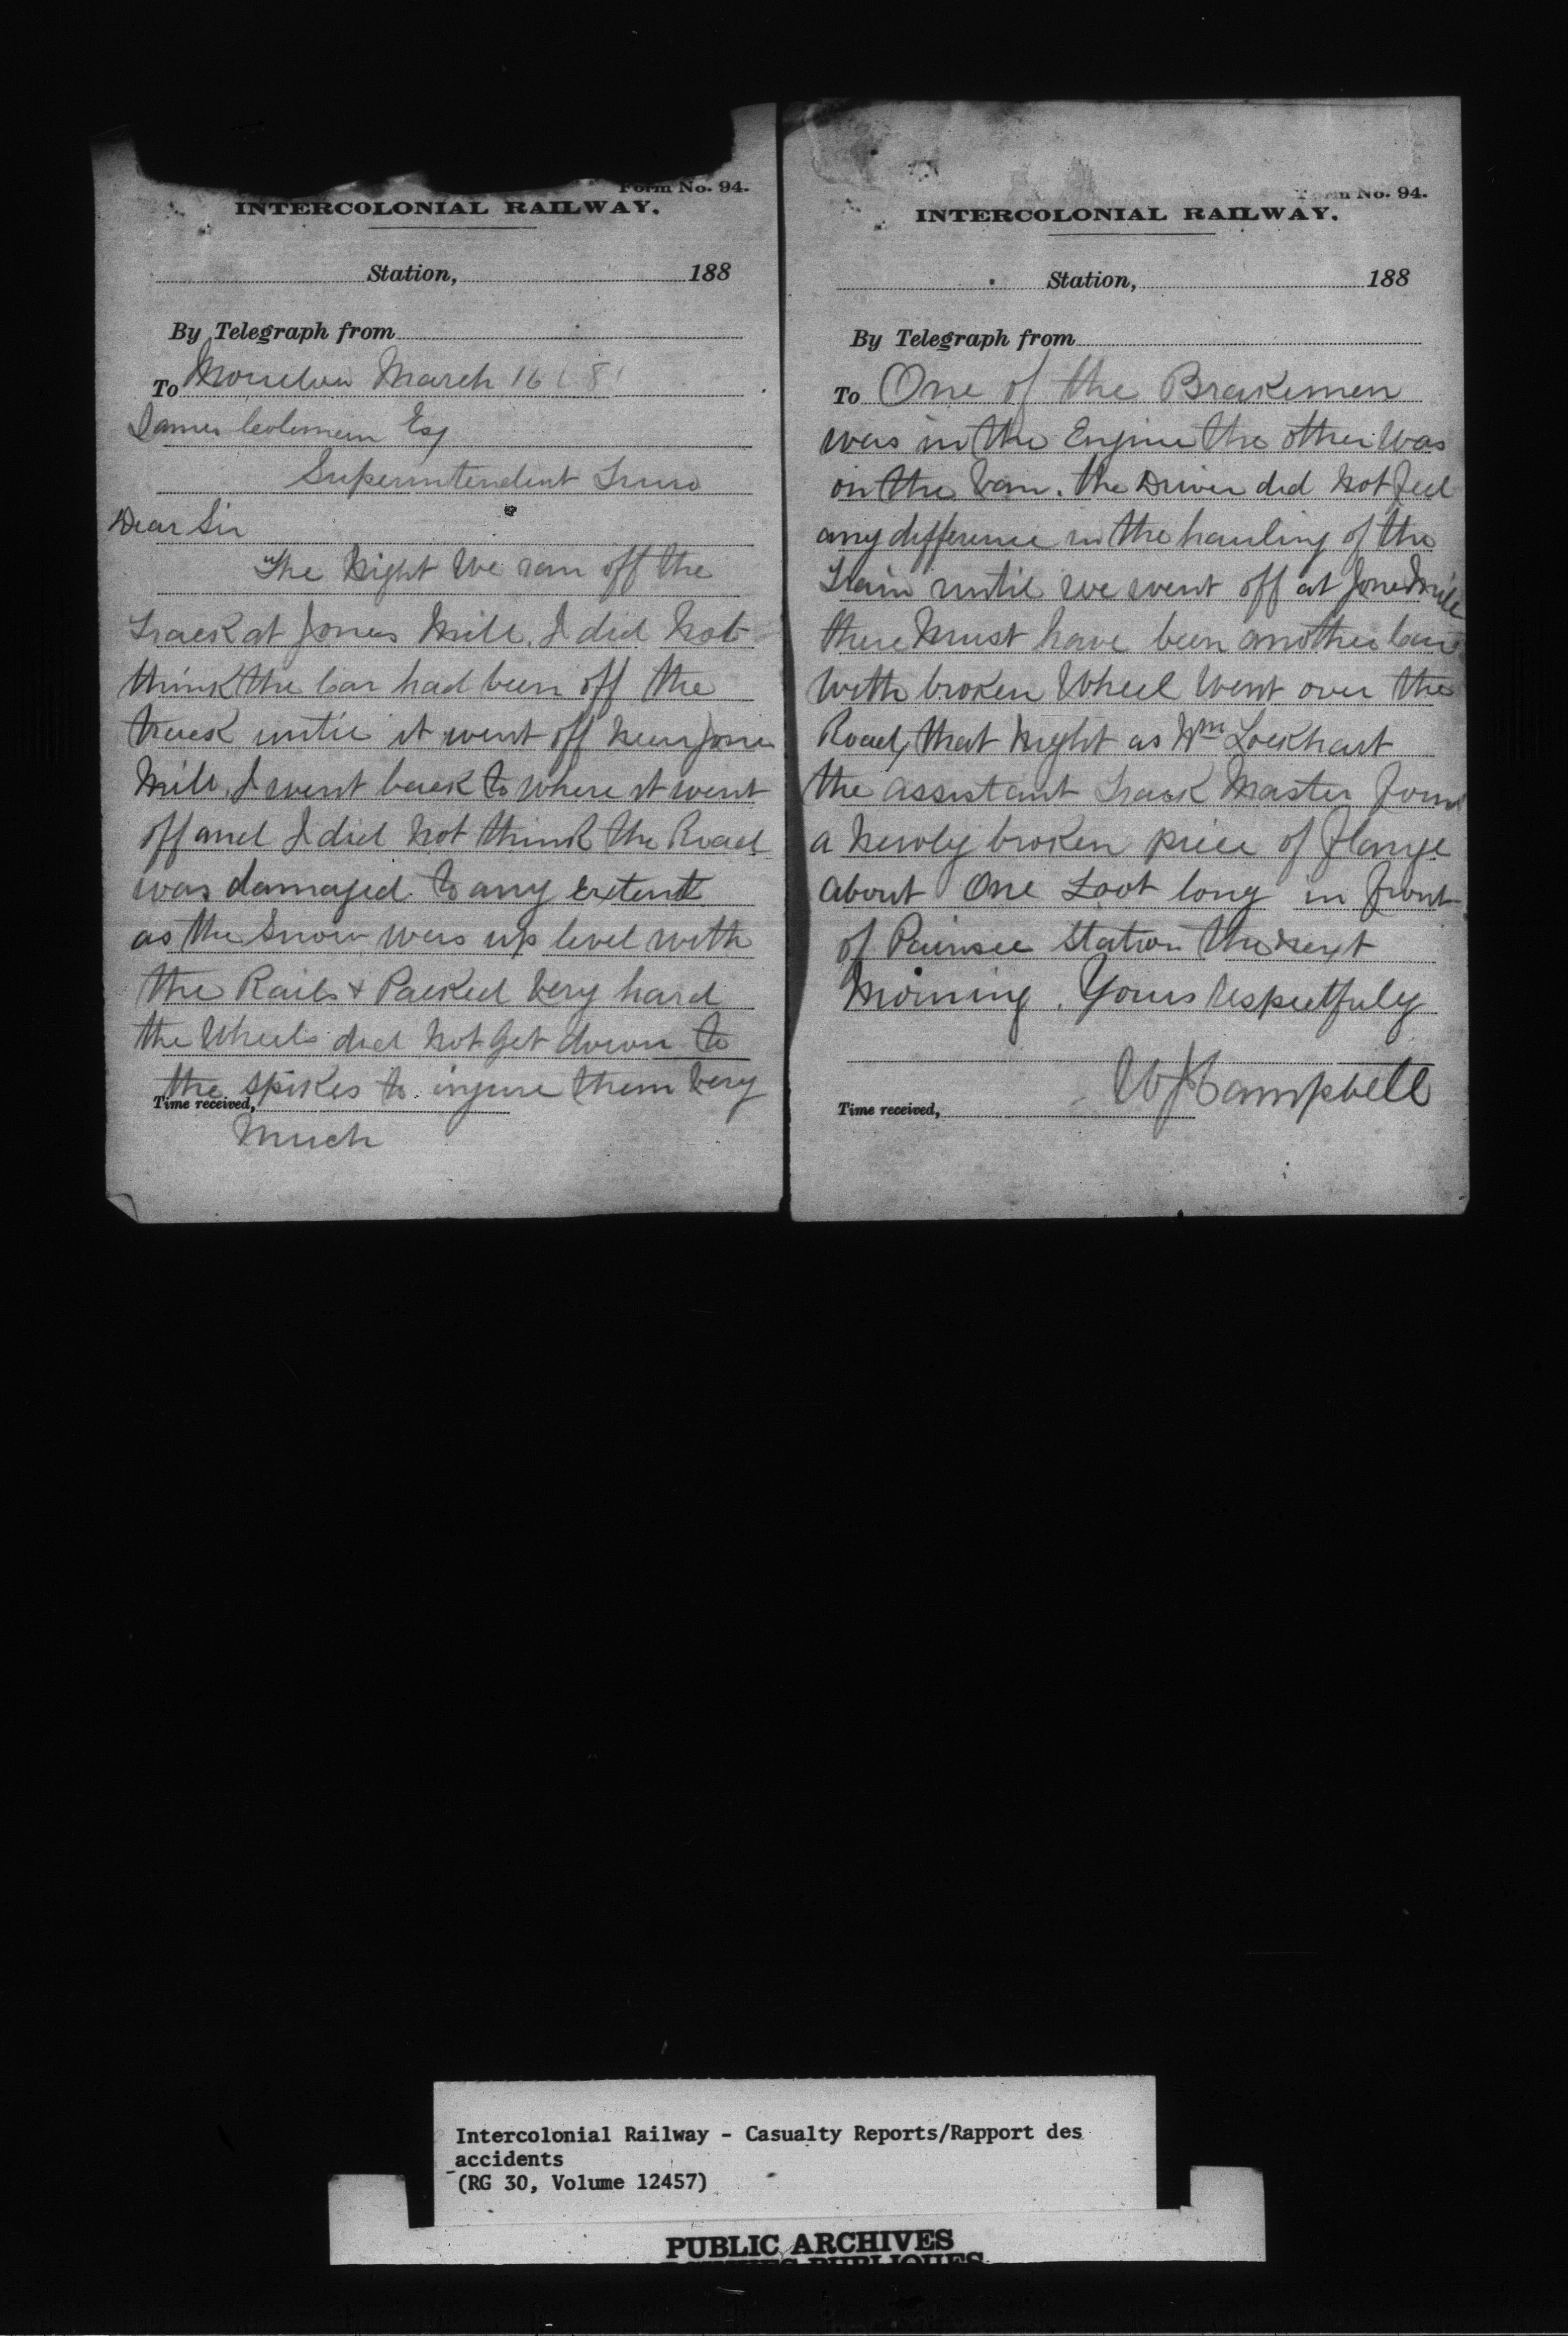 Form No. 94.
INTERCOLONIAL RAILWAY.
Station, 188
By Telegraph from
To Moncton March 16 / 81
James Coleman Esq
Superintendent Truro
Dear Sir
The Night We ran off the
Track at Jones Mill. I did Not
think the Car had been off the
track until it went off near Jones
Mill. I went back to where it went
off and I did Not think the Road
was damaged to any Extent
as the Snow was up level with
the Rails & Packed Very hard
the Wheels did Not Get down to
the Spikes to injure them Very
Time received,
Much
Form No. 94.
INTERCOLONIAL RAILWAY.
Station, 188
By Telegraph from
To One of the Brakemen
was in the Engine the other Was
on the Van. the Driver did Not feel
any difference in the hauling of the
Train until we went off at Jones Mill
there Must have been another Car
With broken Wheel Went over the
Road, that Night as Wm Lockhart
the assistant Track Master found
a Newly broken piece of flange
about One Foot long in front
of Painsec Station the next
Morning. Yours Respectfuly
W J Campbell
Time received,
Intercolonial Railway - Casualty Reports/Rapport des
accidents
(RG 30, Volume 12457)
PUBLIC ARCHIVES